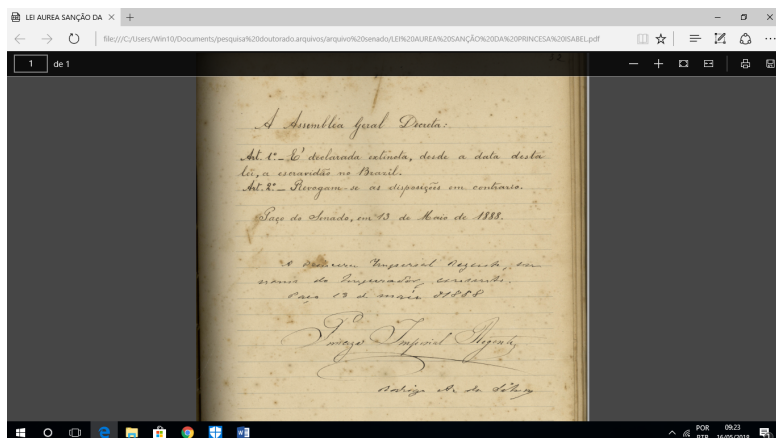 LEI AUREA SANÇÃO DA
file:///C:/Users/Win10/Documents/pesquisa%20doutorado.arquivos/arquivo%20senado/LEI%20AUREA%20SANÇÃO%20DA%20PRINCESA%20ISABEL.pdf
1 de 1
32
A Assembléa Geral Decreta:
Art. 1º – E' declarada extincta, desde a data desta
lei, a escravidão no Brazil.
Art. 2º – Revogam-se as disposições em contrario.
Paço do Senado, em 13 de Maio de 1888.
A Princeza Imperial Regente, em
nome do Imperador, consente.
Paço 13 de maio d 1888
Princeza Imperial Regente
Rodrigo A. da Silva
POR 09:23
PTB 16/05/2018